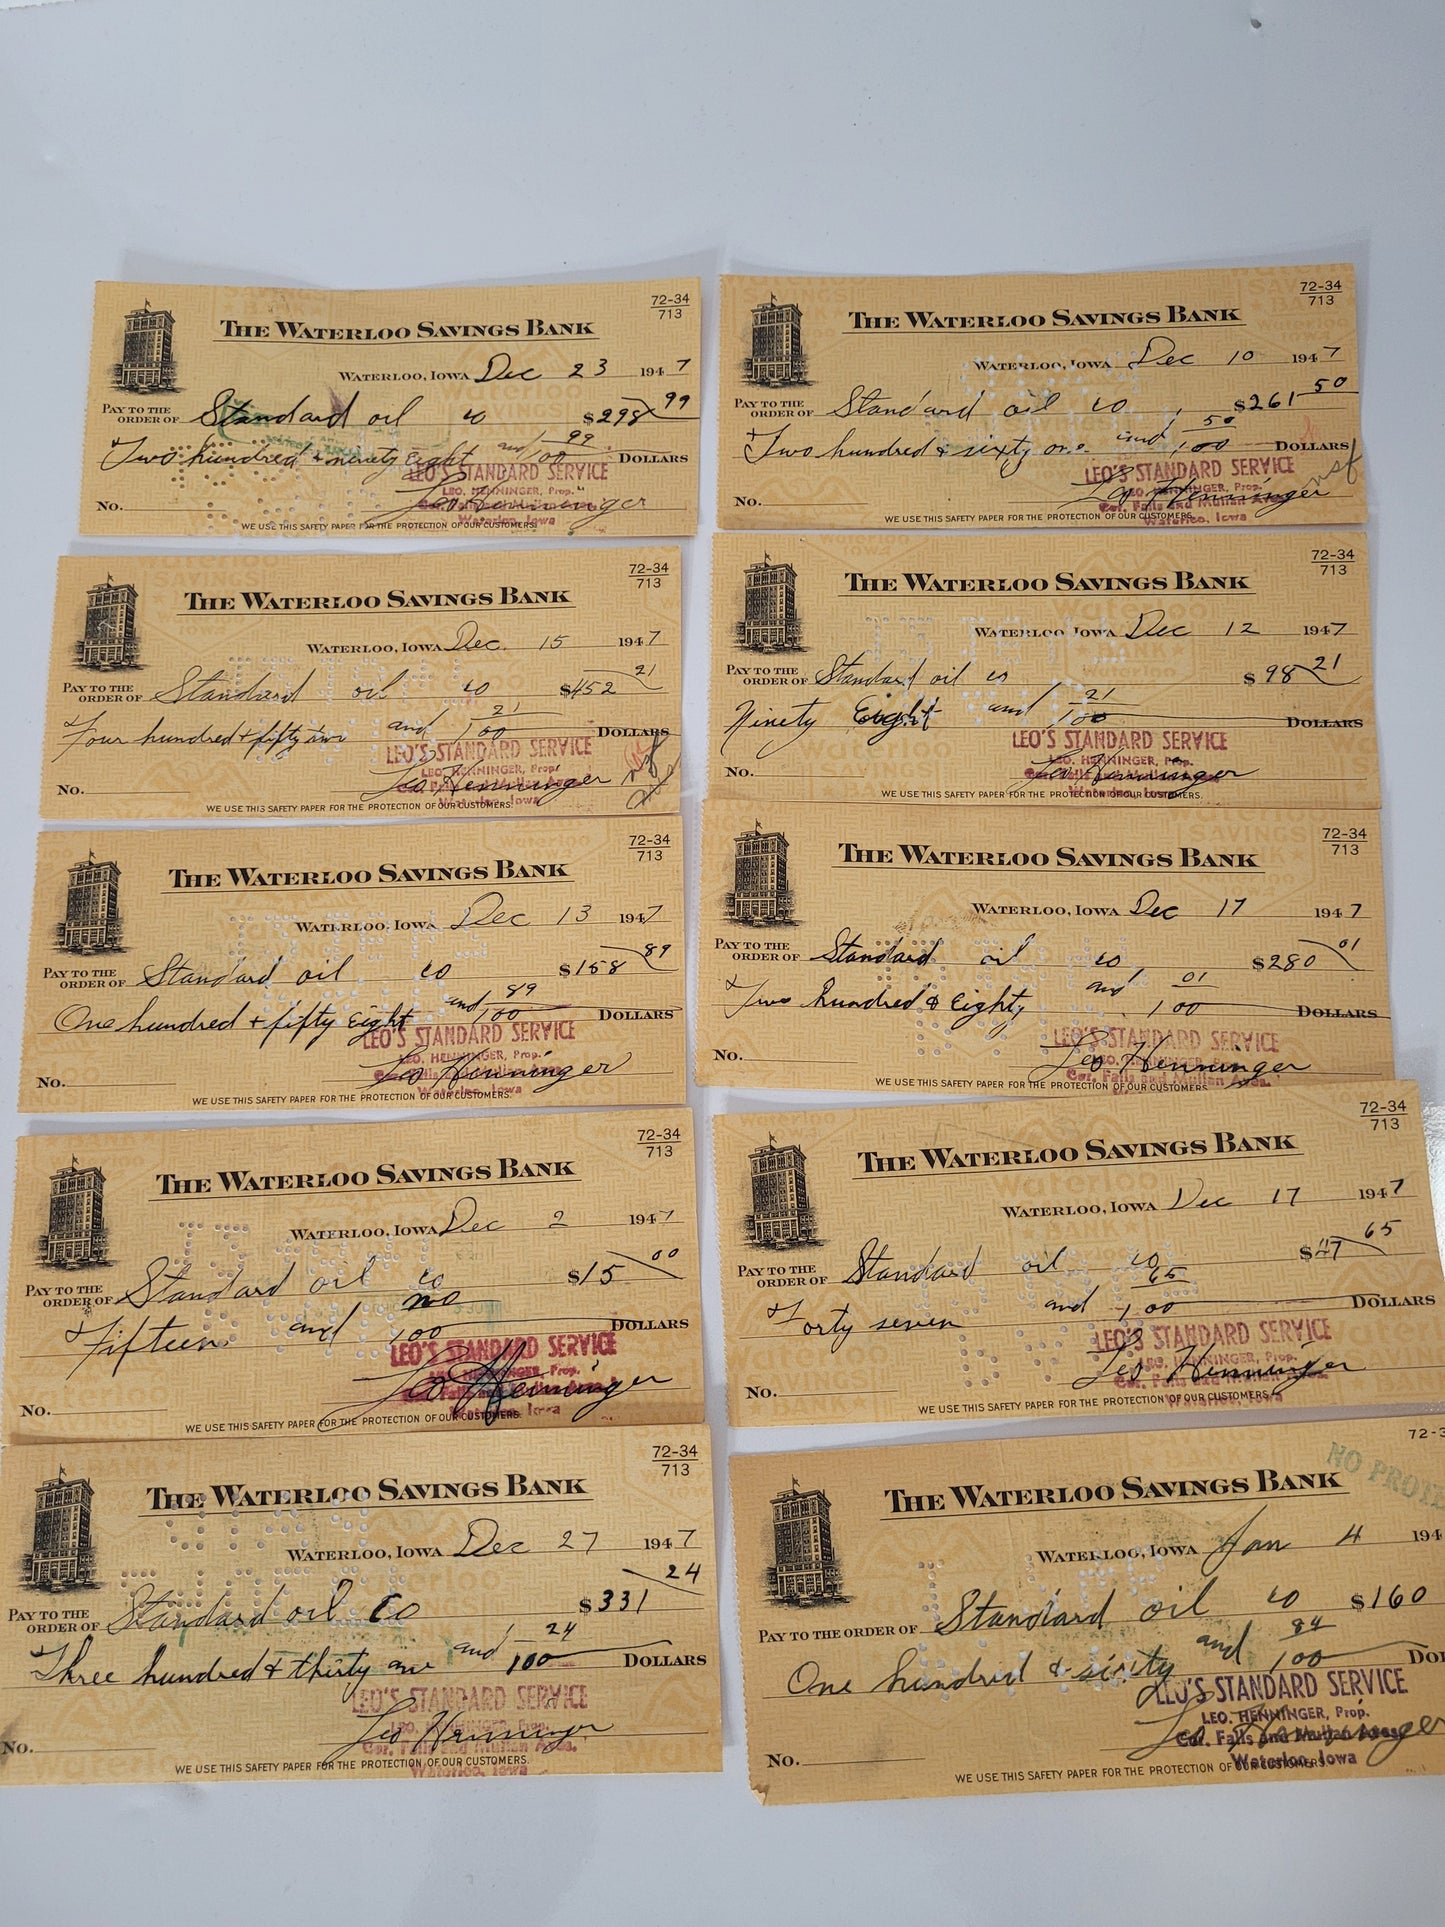 72-34
713
THE WATERLOO SAVINGS BANK
WATERLOO, IOWA Dec 23 1947
PAY TO THE ORDER OF Standard oil co $298 99
Two hundred + ninety Eight and 99/100 DOLLARS
LEO'S STANDARD SERVICE
LEO. HENNINGER, Prop.
Leo Henninger
Waterloo, Iowa
No.
WE USE THIS SAFETY PAPER FOR THE PROTECTION OF OUR CUSTOMERS.
72-34
713
THE WATERLOO SAVINGS BANK
WATERLOO, IOWA Dec 10 1947
PAY TO THE ORDER OF Standard oil co $261 50
Two hundred & sixty one and 50/100 DOLLARS
LEO'S STANDARD SERVICE
LEO. HENNINGER, Prop.
Leo Henninger
Cor. Falls and Mullan Aves.
Waterloo, Iowa
No.
WE USE THIS SAFETY PAPER FOR THE PROTECTION OF OUR CUSTOMERS.
72-34
713
THE WATERLOO SAVINGS BANK
WATERLOO, IOWA Dec. 15 1947
PAY TO THE ORDER OF Standard oil co $452 21
Four hundred + fifty two and 21/100 DOLLARS
LEO'S STANDARD SERVICE
LEO. HENNINGER, Prop.
Leo Henninger
Waterloo, Iowa
No.
WE USE THIS SAFETY PAPER FOR THE PROTECTION OF OUR CUSTOMERS.
72-34
713
THE WATERLOO SAVINGS BANK
WATERLOO, IOWA Dec 12 1947
PAY TO THE ORDER OF Standard oil co $98 21
Ninety Eight and 21/100 DOLLARS
LEO'S STANDARD SERVICE
LEO. HENNINGER, Prop.
Leo Henninger
Waterloo, Iowa
No.
WE USE THIS SAFETY PAPER FOR THE PROTECTION OF OUR CUSTOMERS.
72-34
713
THE WATERLOO SAVINGS BANK
WATERLOO, IOWA Dec 13 1947
PAY TO THE ORDER OF Standard oil co $158 89
One hundred + fifty Eight and 89/100 DOLLARS
LEO'S STANDARD SERVICE
LEO. HENNINGER, Prop.
Leo Henninger
Waterloo, Iowa
No.
WE USE THIS SAFETY PAPER FOR THE PROTECTION OF OUR CUSTOMERS.
72-34
713
THE WATERLOO SAVINGS BANK
WATERLOO, IOWA Dec 17 1947
PAY TO THE ORDER OF Standard oil co $280 01
Two hundred & Eighty and 01/100 DOLLARS
LEO'S STANDARD SERVICE
Leo Henninger
Cor. Falls and Mullan Aves.
No.
WE USE THIS SAFETY PAPER FOR THE PROTECTION OF OUR CUSTOMERS
72-34
713
THE WATERLOO SAVINGS BANK
WATERLOO, IOWA Dec 2 1947
PAY TO THE ORDER OF Standard oil co $15 00
Fifteen and no/100 DOLLARS
LEO'S STANDARD SERVICE
LEO. HENNINGER, Prop.
Leo Henninger
Waterloo, Iowa
No.
WE USE THIS SAFETY PAPER FOR THE PROTECTION OF OUR CUSTOMERS.
72-34
713
THE WATERLOO SAVINGS BANK
WATERLOO, IOWA Dec 17 1947
PAY TO THE ORDER OF Standard oil co $47 65
Forty seven and 65/100 DOLLARS
LEO'S STANDARD SERVICE
LEO. HENNINGER, Prop.
Leo Henninger
Waterloo, Iowa
No.
WE USE THIS SAFETY PAPER FOR THE PROTECTION OF OUR CUSTOMERS.
72-34
713
THE WATERLOO SAVINGS BANK
WATERLOO, IOWA Dec 27 1947
PAY TO THE ORDER OF Standard oil Co $331 24
Three hundred & thirty one and 24/100 DOLLARS
LEO'S STANDARD SERVICE
LEO. HENNINGER, Prop.
Leo Henninger
Cor. Falls and Mullan Aves.
Waterloo, Iowa
No.
WE USE THIS SAFETY PAPER FOR THE PROTECTION OF OUR CUSTOMERS.
72-3
NO PROTE
THE WATERLOO SAVINGS BANK
WATERLOO, IOWA Jan 4 194
PAY TO THE ORDER OF Standard oil co $160
One hundred & sixty and 84/100 DOL
LEO'S STANDARD SERVICE
LEO. HENNINGER, Prop.
Leo Henninger
Cor. Falls and Mullan Aves.
Waterloo, Iowa
No.
WE USE THIS SAFETY PAPER FOR THE PROTECTION OF OUR CUSTOMERS.